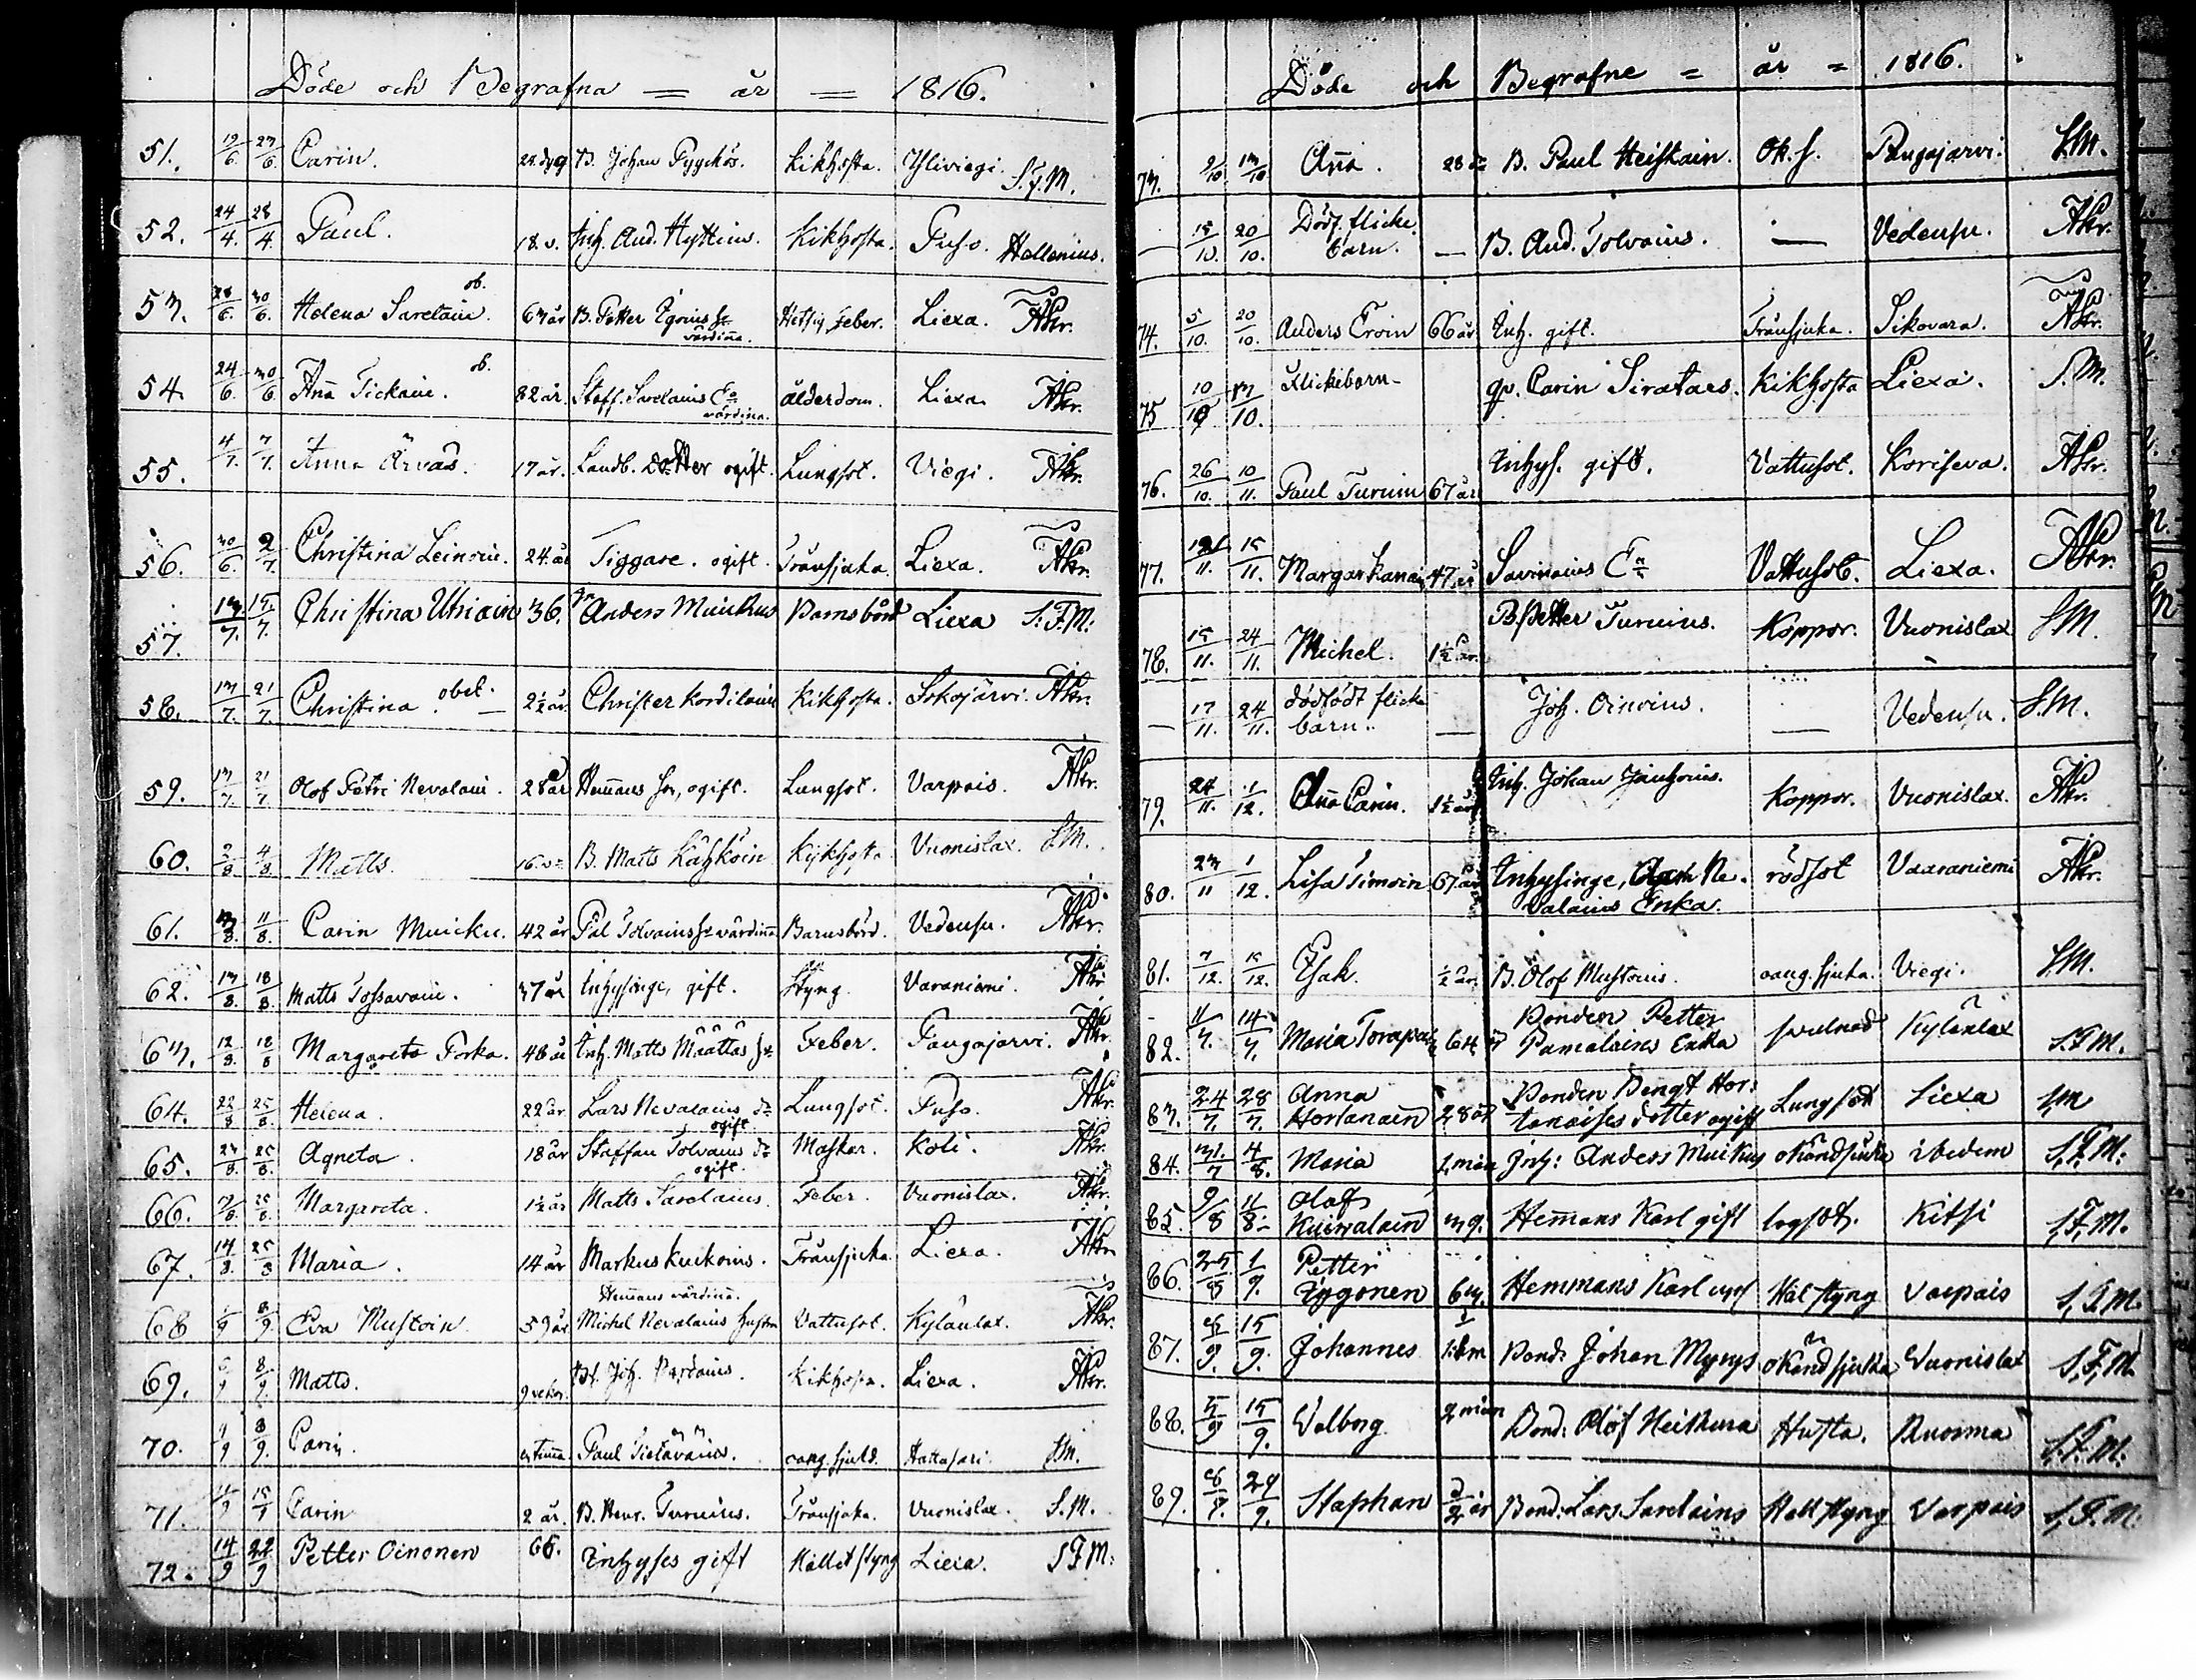 Döde och Begrafna = år = 1816.
51. 19/6. 23/6. Carin. 22. dyg B. Johan Pyykös. Kikhosta. Yliviegi. S.F.M.
52. 24/4. 28/4. Paul. 18 v. Inh. And. Hyttins. Kikhosta. Puso. Hellenius.
53. 28/6. 30/6. Helena Saretain. ob. 63 år B. Petter Egoins värdinna. Hetsig Feber. Liexa.
54. 24/6. 30/6. Anna Tickain. ob. 82 år. Staff. Sarelains E:a värdinna. ålderdom. Liexa.
55. 4/7. 7/7. Anna Ärväs. 17 år. Landb. dotter ogift. Lungsot. Viegi.
56. 30/6. 2/7. Christina Leinoin. 24. år Tiggare. ogift. Trånsjuka. Liexa.
57. 13/7. 15/7. Christina Utriain 36. Anders Muickus Barnsbörd Liexa S.F.M.
58. 13/7. 21/7. Christina obet. 2½ år. Christer Kordilain Kikhosta. Sokojärvi.
59. 13/7. 21/7. Olof Petri Nevalain. 28 år Hemans son, ogift. Lungsot. Varpais.
60. 2/8. 4/8. Matts. 16. v. B. Matts Kähköin Kikhosta Vuonislax. S.M.
61. 3/8. 11/8. Carin Muicku. 42 år Pål Tolvains värdinna Barnsbörd. Vedensu.
62. 13/8. 18/8. Matts Tossavain. 37 år Inhysinge, gift. Styng. Varaniemi.
63. 12/8. 18/8. Margareta Torka. 46 år Inh. Matts Määttäs Feber. Pangajarvi.
64. 22/8 25/8. Helena. 22 år. Lars Nevalains dr ogift. Lungsot. Puso.
65. 23/8. 25/8. Agneta. 18 år Staffan Tolvains dr ogift. Maskar. Koli.
66. 25/8. Margareta. 1½ år Matts Sarelains. Feber. Vuonislax.
67. 14/8. 25/8 Maria. 14 år Markus Kuikoins. Trånsjuka. Liexa.
68 1/9 8/9 Eva Mustoin. 59 år Hemans värdinna. Michel Nevalains hustru Vattusot. Kylänlax.
69. 8/9. Matts. 9 vekor. Joh. Partains. Kikhosta. Liexa.
70. 8/9. Carin. Paul Tietäväins. oang. sjukd. Hattusari. S.M.
71. 15/9 Carin 2 år. B. Henr. Turuins. Trånsjuka. Vuonislax. S.M.
72. 14/9 22/9 Petter Oinonen 66. Inhyses gift Hållet styng Liexa. S F M.
Döde och Begrafne = år = 1816.
73. 9/10. 13/10 Anna. 28 B. Paul Heiskain. Ok. s. Pangajarvi. S.M.
— 15/10. 20/10. Dödf. flicke barn. — B. And. Tolvains. — Vedensu.
74. 5/10. 20/10. Anders Eroin 66 år Inh. gift. Trånsjuka. Sikovara.
75 10/10 13/10. Flickebarn — qv. Carin Siratars. Kikhosta Liexa. S.M.
76. 26/10. 10/11. Paul Turuin 67 år Inhys. gift. Vattusot. Koriseva.
77. 15/11. Margar Kanain 47 år Savinains E:a Vattusot. Liexa.
78. 15/11. 24/11. Michel. 1½ år. B. Petter Turuins. Koppor. Vuonislax S.M.
— 17/11. 24/11. dödfödt flicke barn. — Joh. Oinoins. — Vedensu. S.M.
79. 24/11. 1/12. Anna Carin. 1½ år Inh. Johan Jäuhoins. Koppor. Vuonislax.
80. 23/11 1/12. Lisa Timoin 67 år Inhysinge, Nevalains Enka. rödsot Vaaraniemi
81. 7/12. 15/12. Esak. ½ år. B. Olof Mustoins. oang. sjuka. Viegi. S.M.
82. 11/7. 14/7. Maria Torapain 64 år Bonden Petter Pamalains Enka svulnad Kylänlax S.F.M.
83. 24/7. 28/7. Anna Hortanain 28 år Bonden Bengt Hortanaises dotter ogift Lungsot Liexa S.M
84. 31/7 4/8. Maria 2 mån Inh: Anders Muikus okändsjuka ibedem S.F.M.
85. 9/8 11/8. Olof Kuivalain 39. Hemans Karl gift lngsot. Kitsi S.F.M.
86. 25/8 1/9. Petter Eygonen 63. Hemmans Karl Hål styng Varpais S.F.M.
87. 15/9. Johannes Bond. Johan Myrys okändsjuka Vuonislax S.F.M.
88. 5/9 15/9. Valborg 2 mån Bond. Olof Heikura Husta. Ruonna S.F.M.
89. 29/9. Staphan Bond. Lars Sarelains Hall styng Varpais S.F.M.